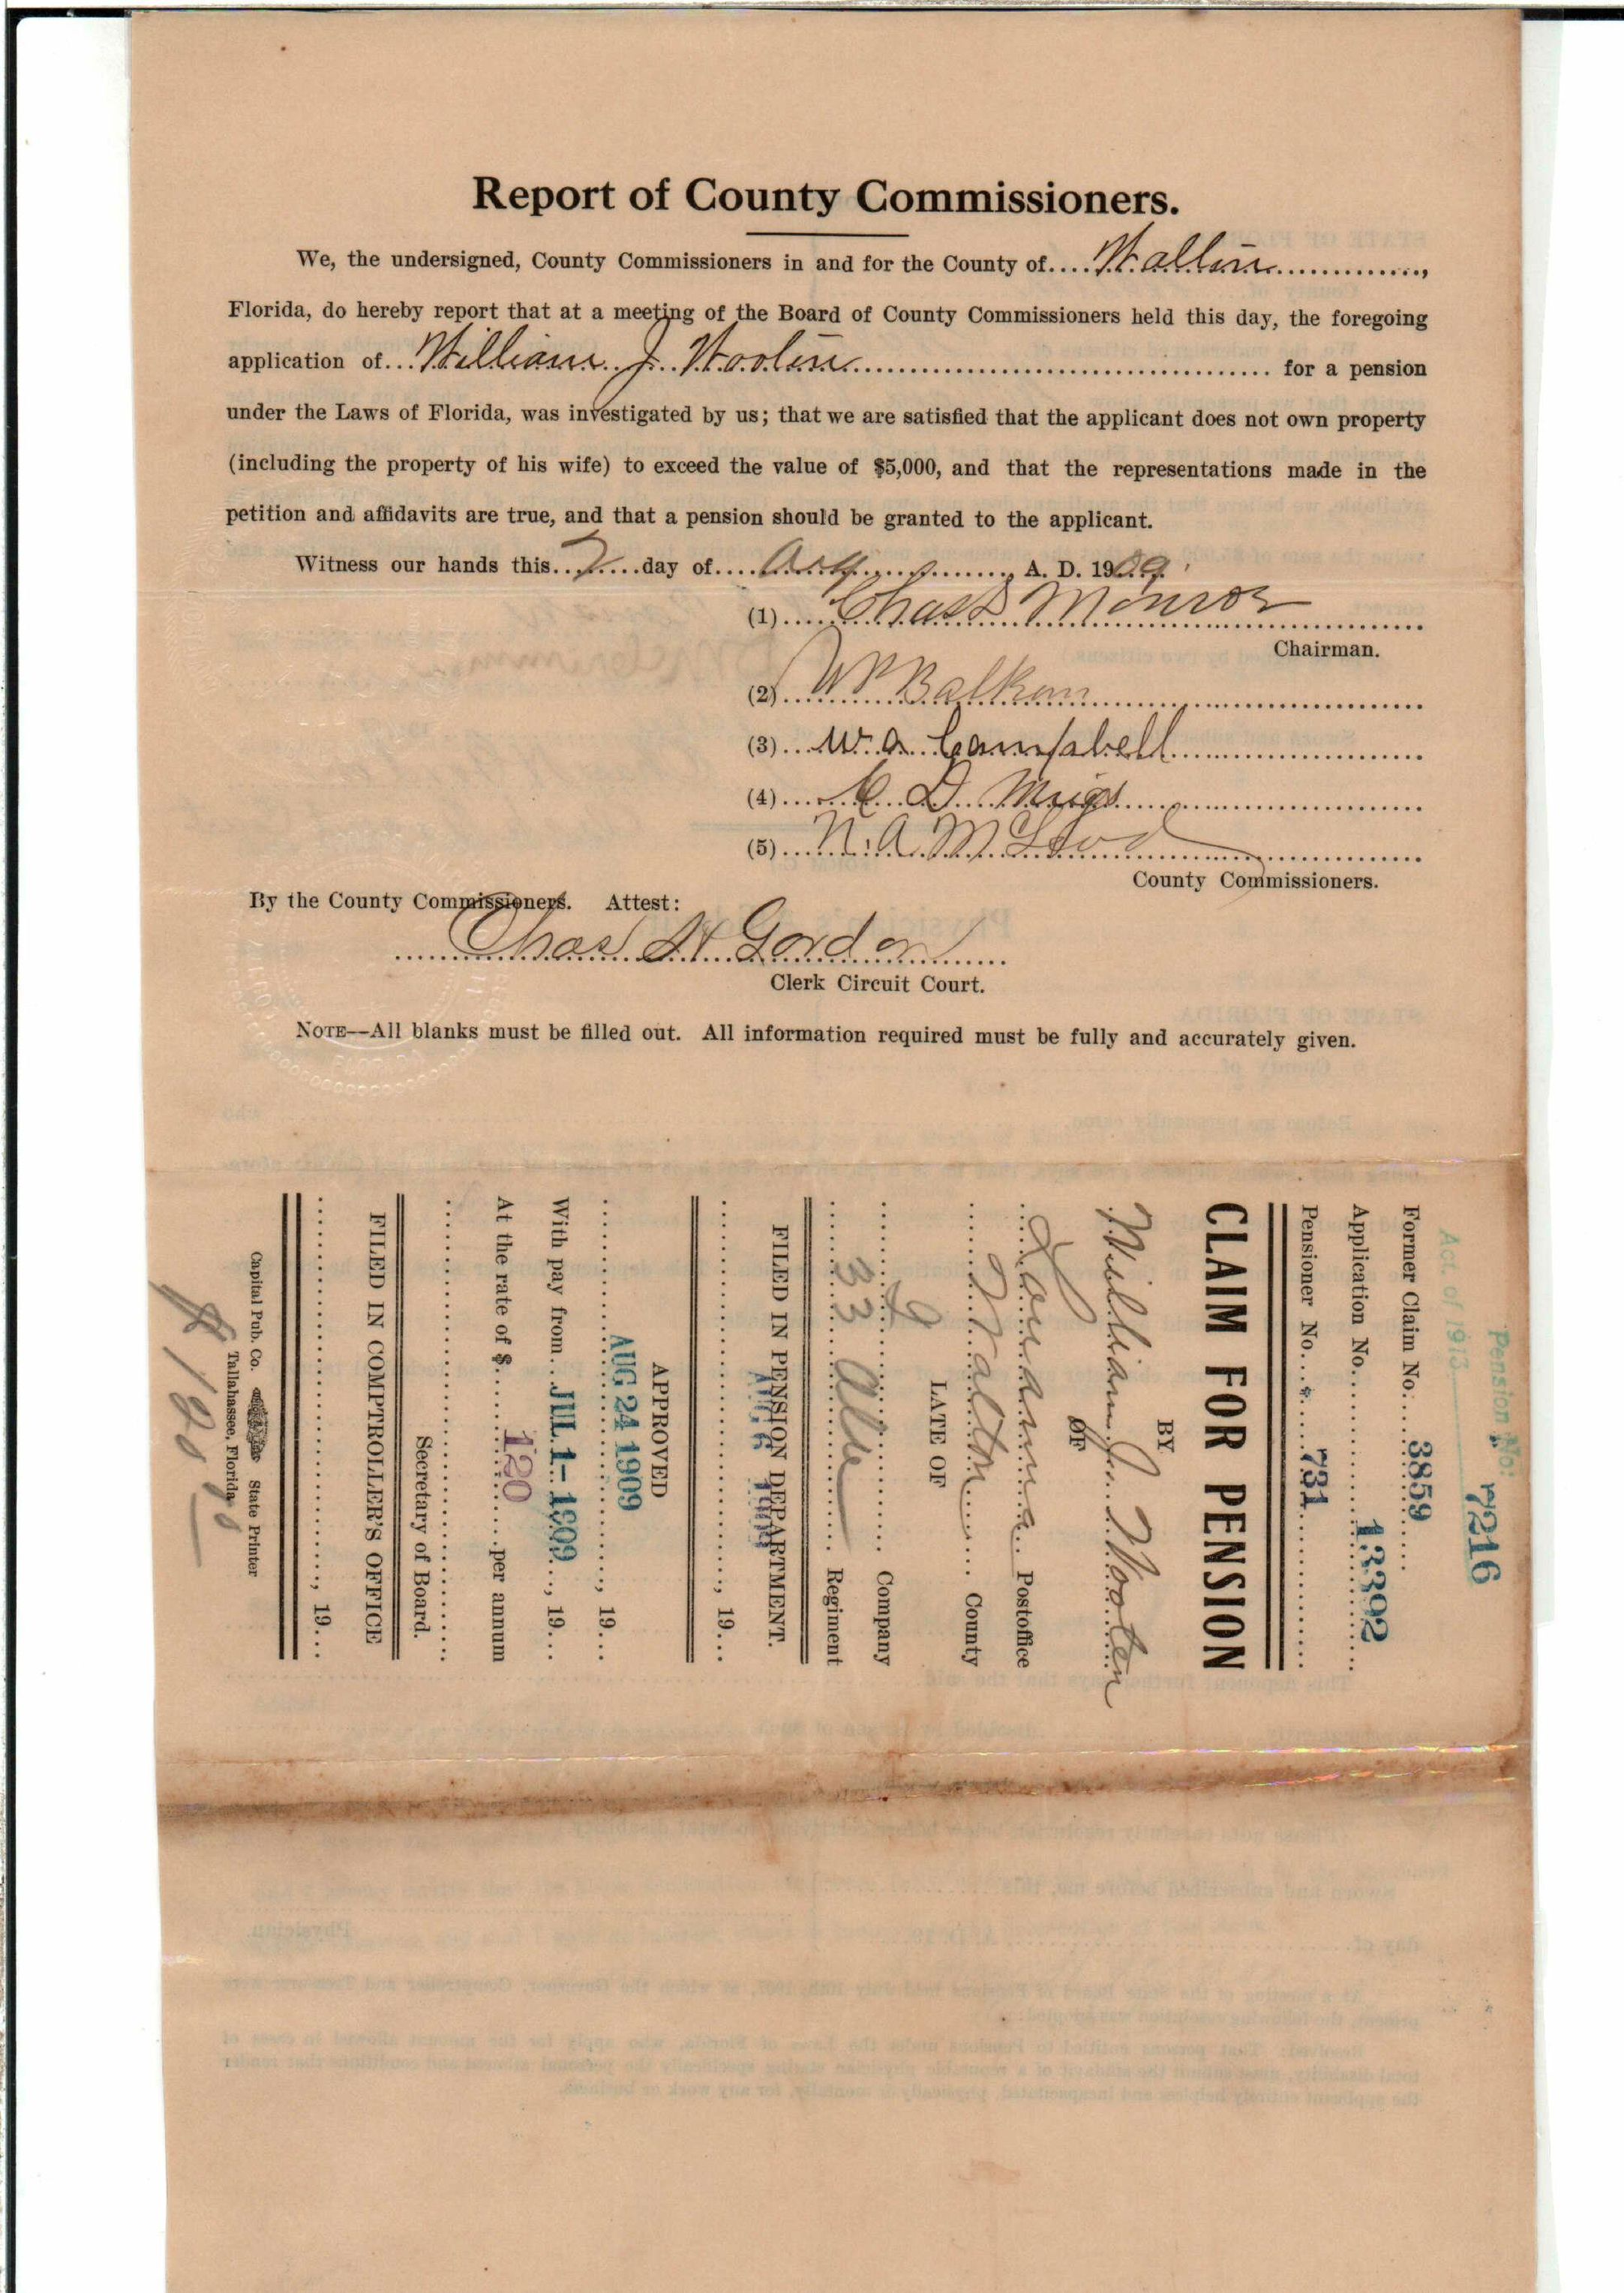 Report of County Commissioners.
We, the undersigned, County Commissioners in and for the County of....Walton..............,
Florida, do hereby report that at a meeting of the Board of County Commissioners held this day, the foregoing
application of...William J. Wooten.......................................... for a pension
under the Laws of Florida, was investigated by us; that we are satisfied that the applicant does not own property
(including the property of his wife) to exceed the value of $5,000, and that the representations made in the
petition and affidavits are true, and that a pension should be granted to the applicant.
Witness our hands this..2.....day of....Aug............., A. D. 1909.
(1).....Chas D Monroe
Chairman.
(2)....W P Balkom
(3)...W. A. Campbell
(4)....C. D. Migs
(5)....N. A. McLeod
County Commissioners.
By the County Commissioners. Attest:
Chas H Gordon
Clerk Circuit Court.
NOTE--All blanks must be filled out. All information required must be fully and accurately given.
Pension No: 7216
Act of 1913
Former Claim No. 3859
Application No. 13392
Pensioner No. 731
CLAIM FOR PENSION
BY
William J. Wooten
OF
Postoffice
Walton County
LATE OF
Company
33 Ala Regiment
FILED IN PENSION DEPARTMENT.
, 19...
APPROVED
AUG 24 1909, 19...
With pay from JUL 1- 1909, 19...
At the rate of $ 120 per annum
Secretary of Board.
FILED IN COMPTROLLER'S OFFICE
, 19...
Capital Pub. Co. State Printer
Tallahassee, Florida